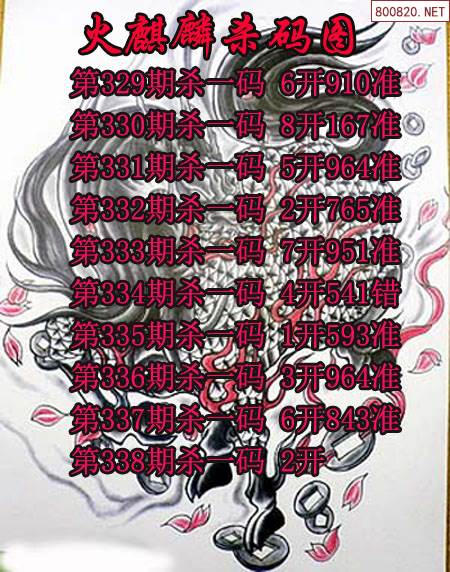 800820.NET
火麒麟杀码图
第329期杀一码 6开910准
第330期杀一码 8开167准
第331期杀一码 5开964准
第332期杀一码 2开765准
第333期杀一码 7开951准
第334期杀一码 4开541错
第335期杀一码 1开593准
第336期杀一码 3开964准
第337期杀一码 6开843准
第338期杀一码 2开